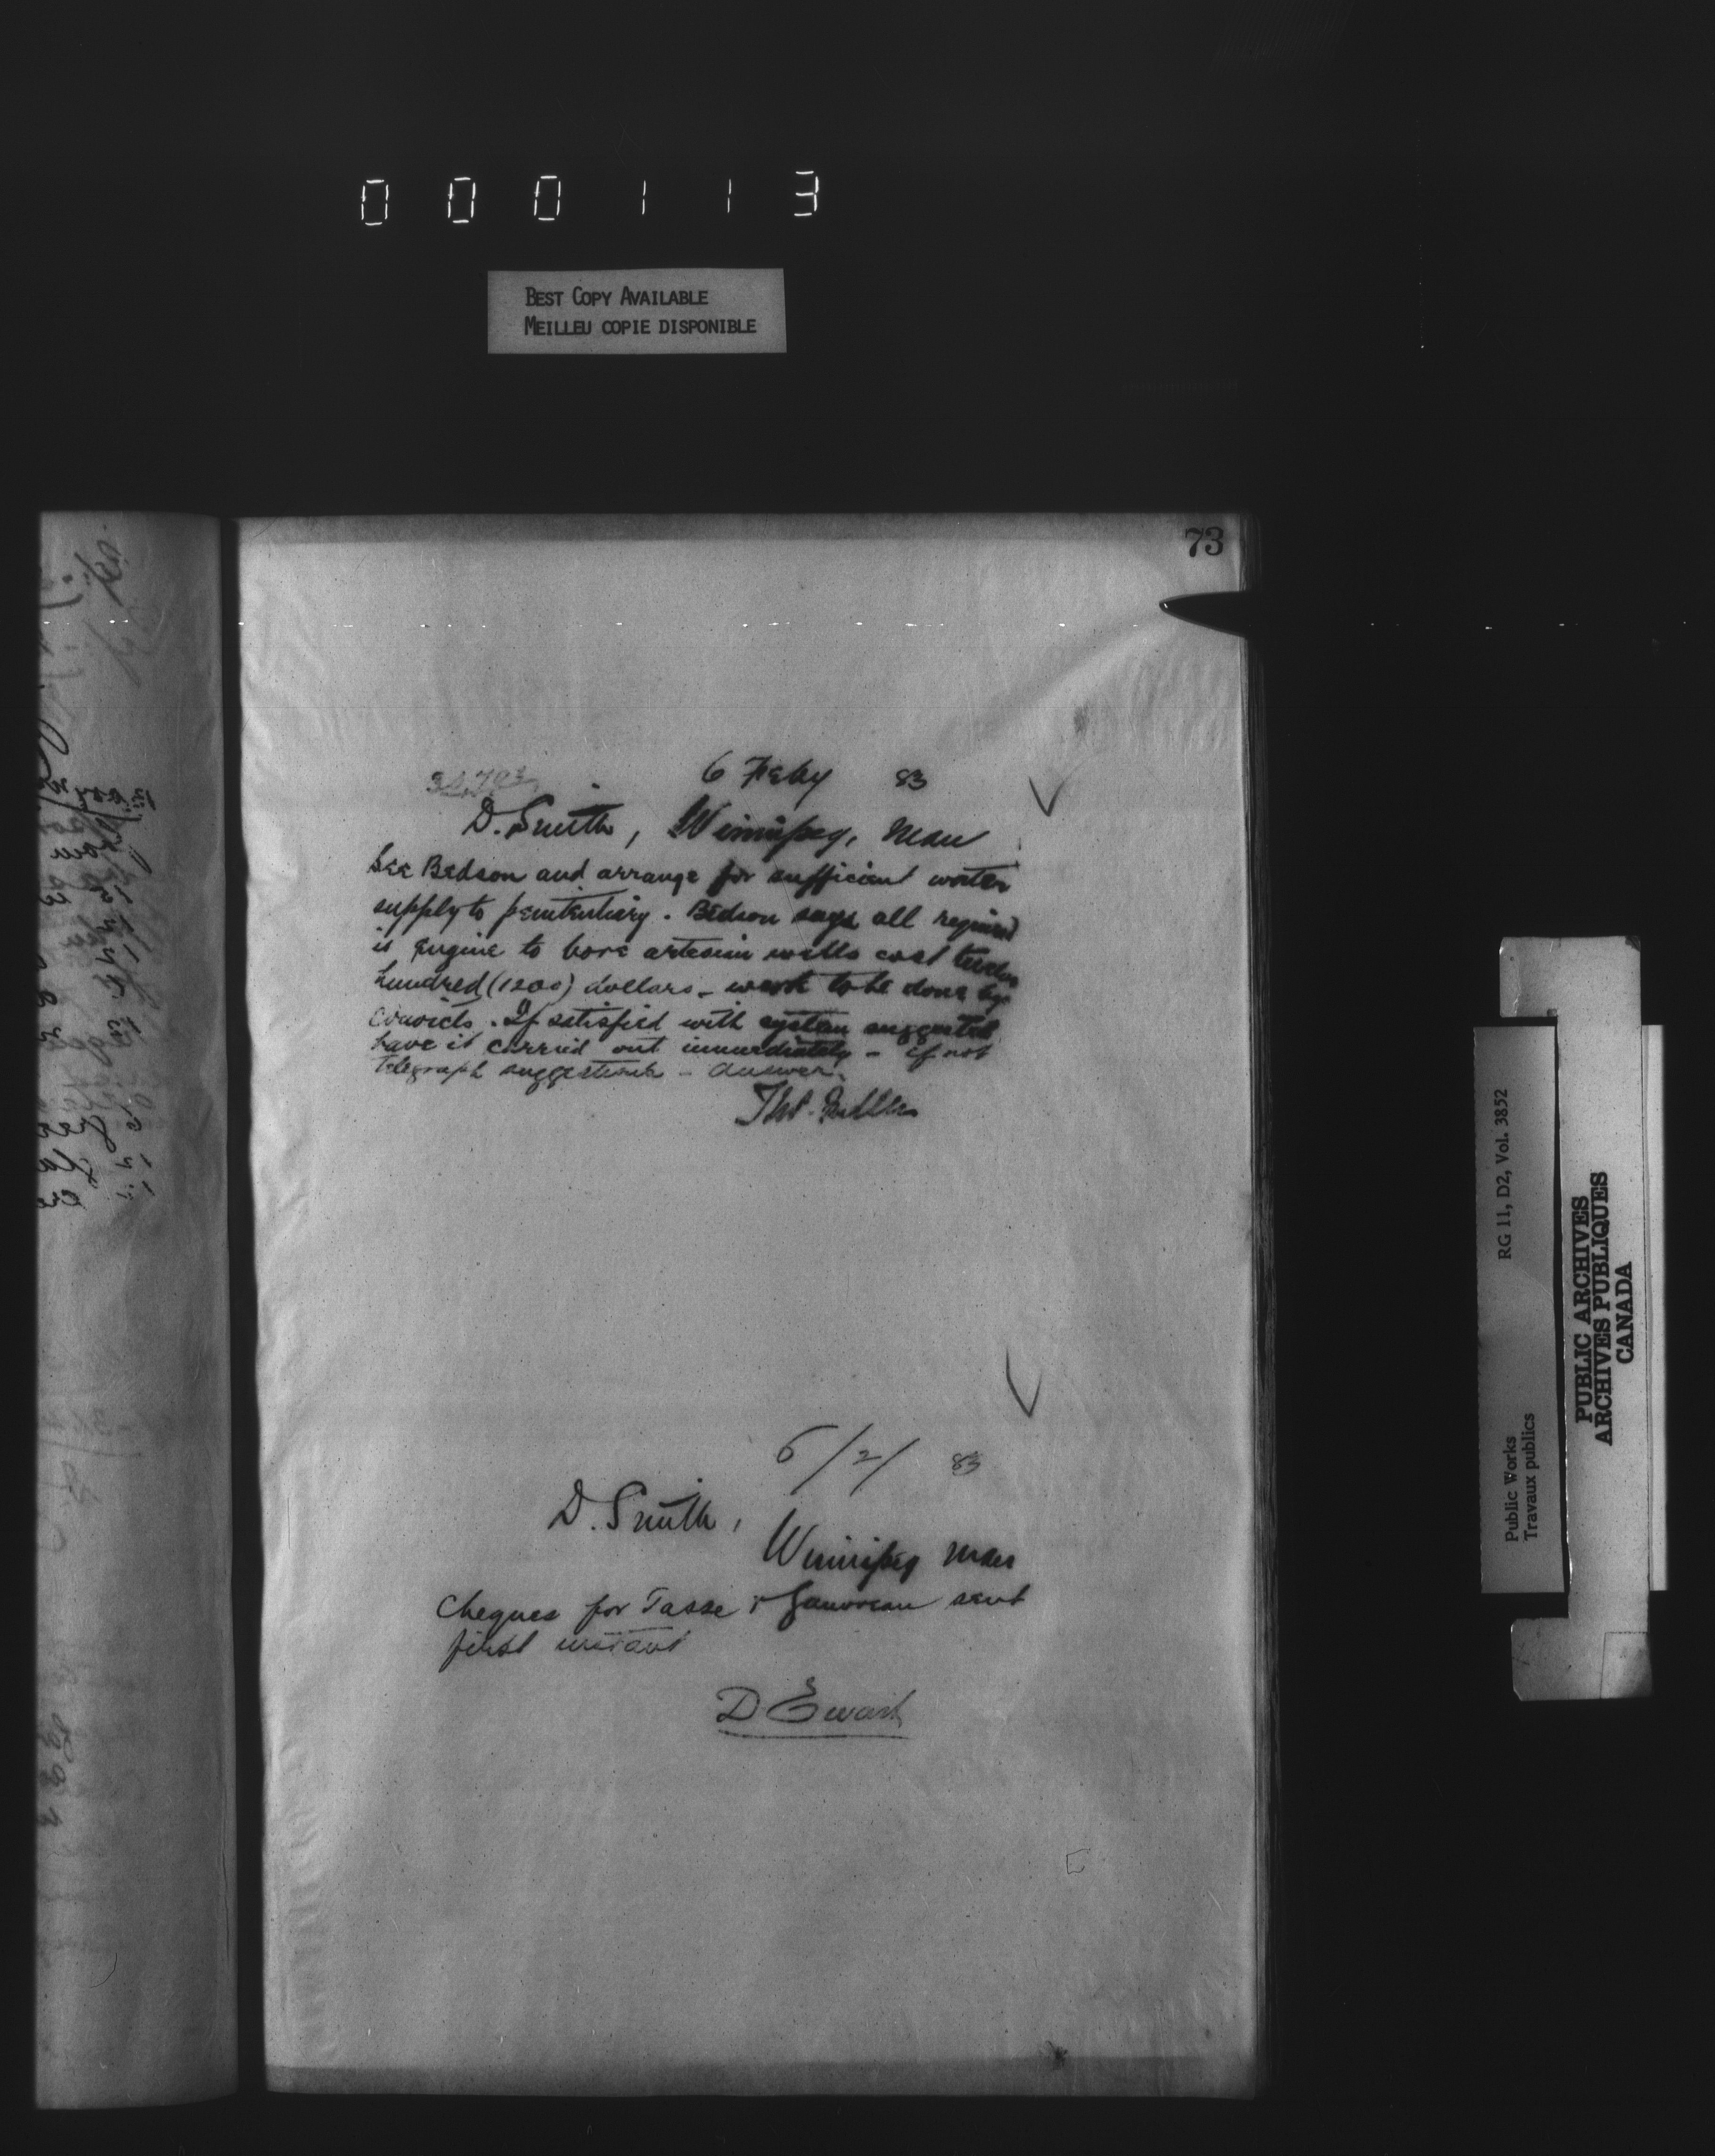 000113
BEST COPY AVAILABLE
MEILLEU COPIE DISPONIBLE
73
6 Feby 83
D. Smith, Winnipeg, Man
See Bedson and arrange for sufficient water
supply to penitentiary. Bedson says all required
is engine to bore artesian wells cost twelve
hundred (1200) dollars - work to be done by
convicts. If satisfied with system suggested
have it carried out immediately - if not
telegraph suggestions - answer.
Thos. Fuller
6/2/ 83
D. Smith,
Winnipeg Man
Cheques for Tasse & Gauvreau sent
first instant
D. Ewart
RG 11, D2, Vol. 3852
Public Works
Travaux publics
PUBLIC ARCHIVES
ARCHIVES PUBLIQUES
CANADA